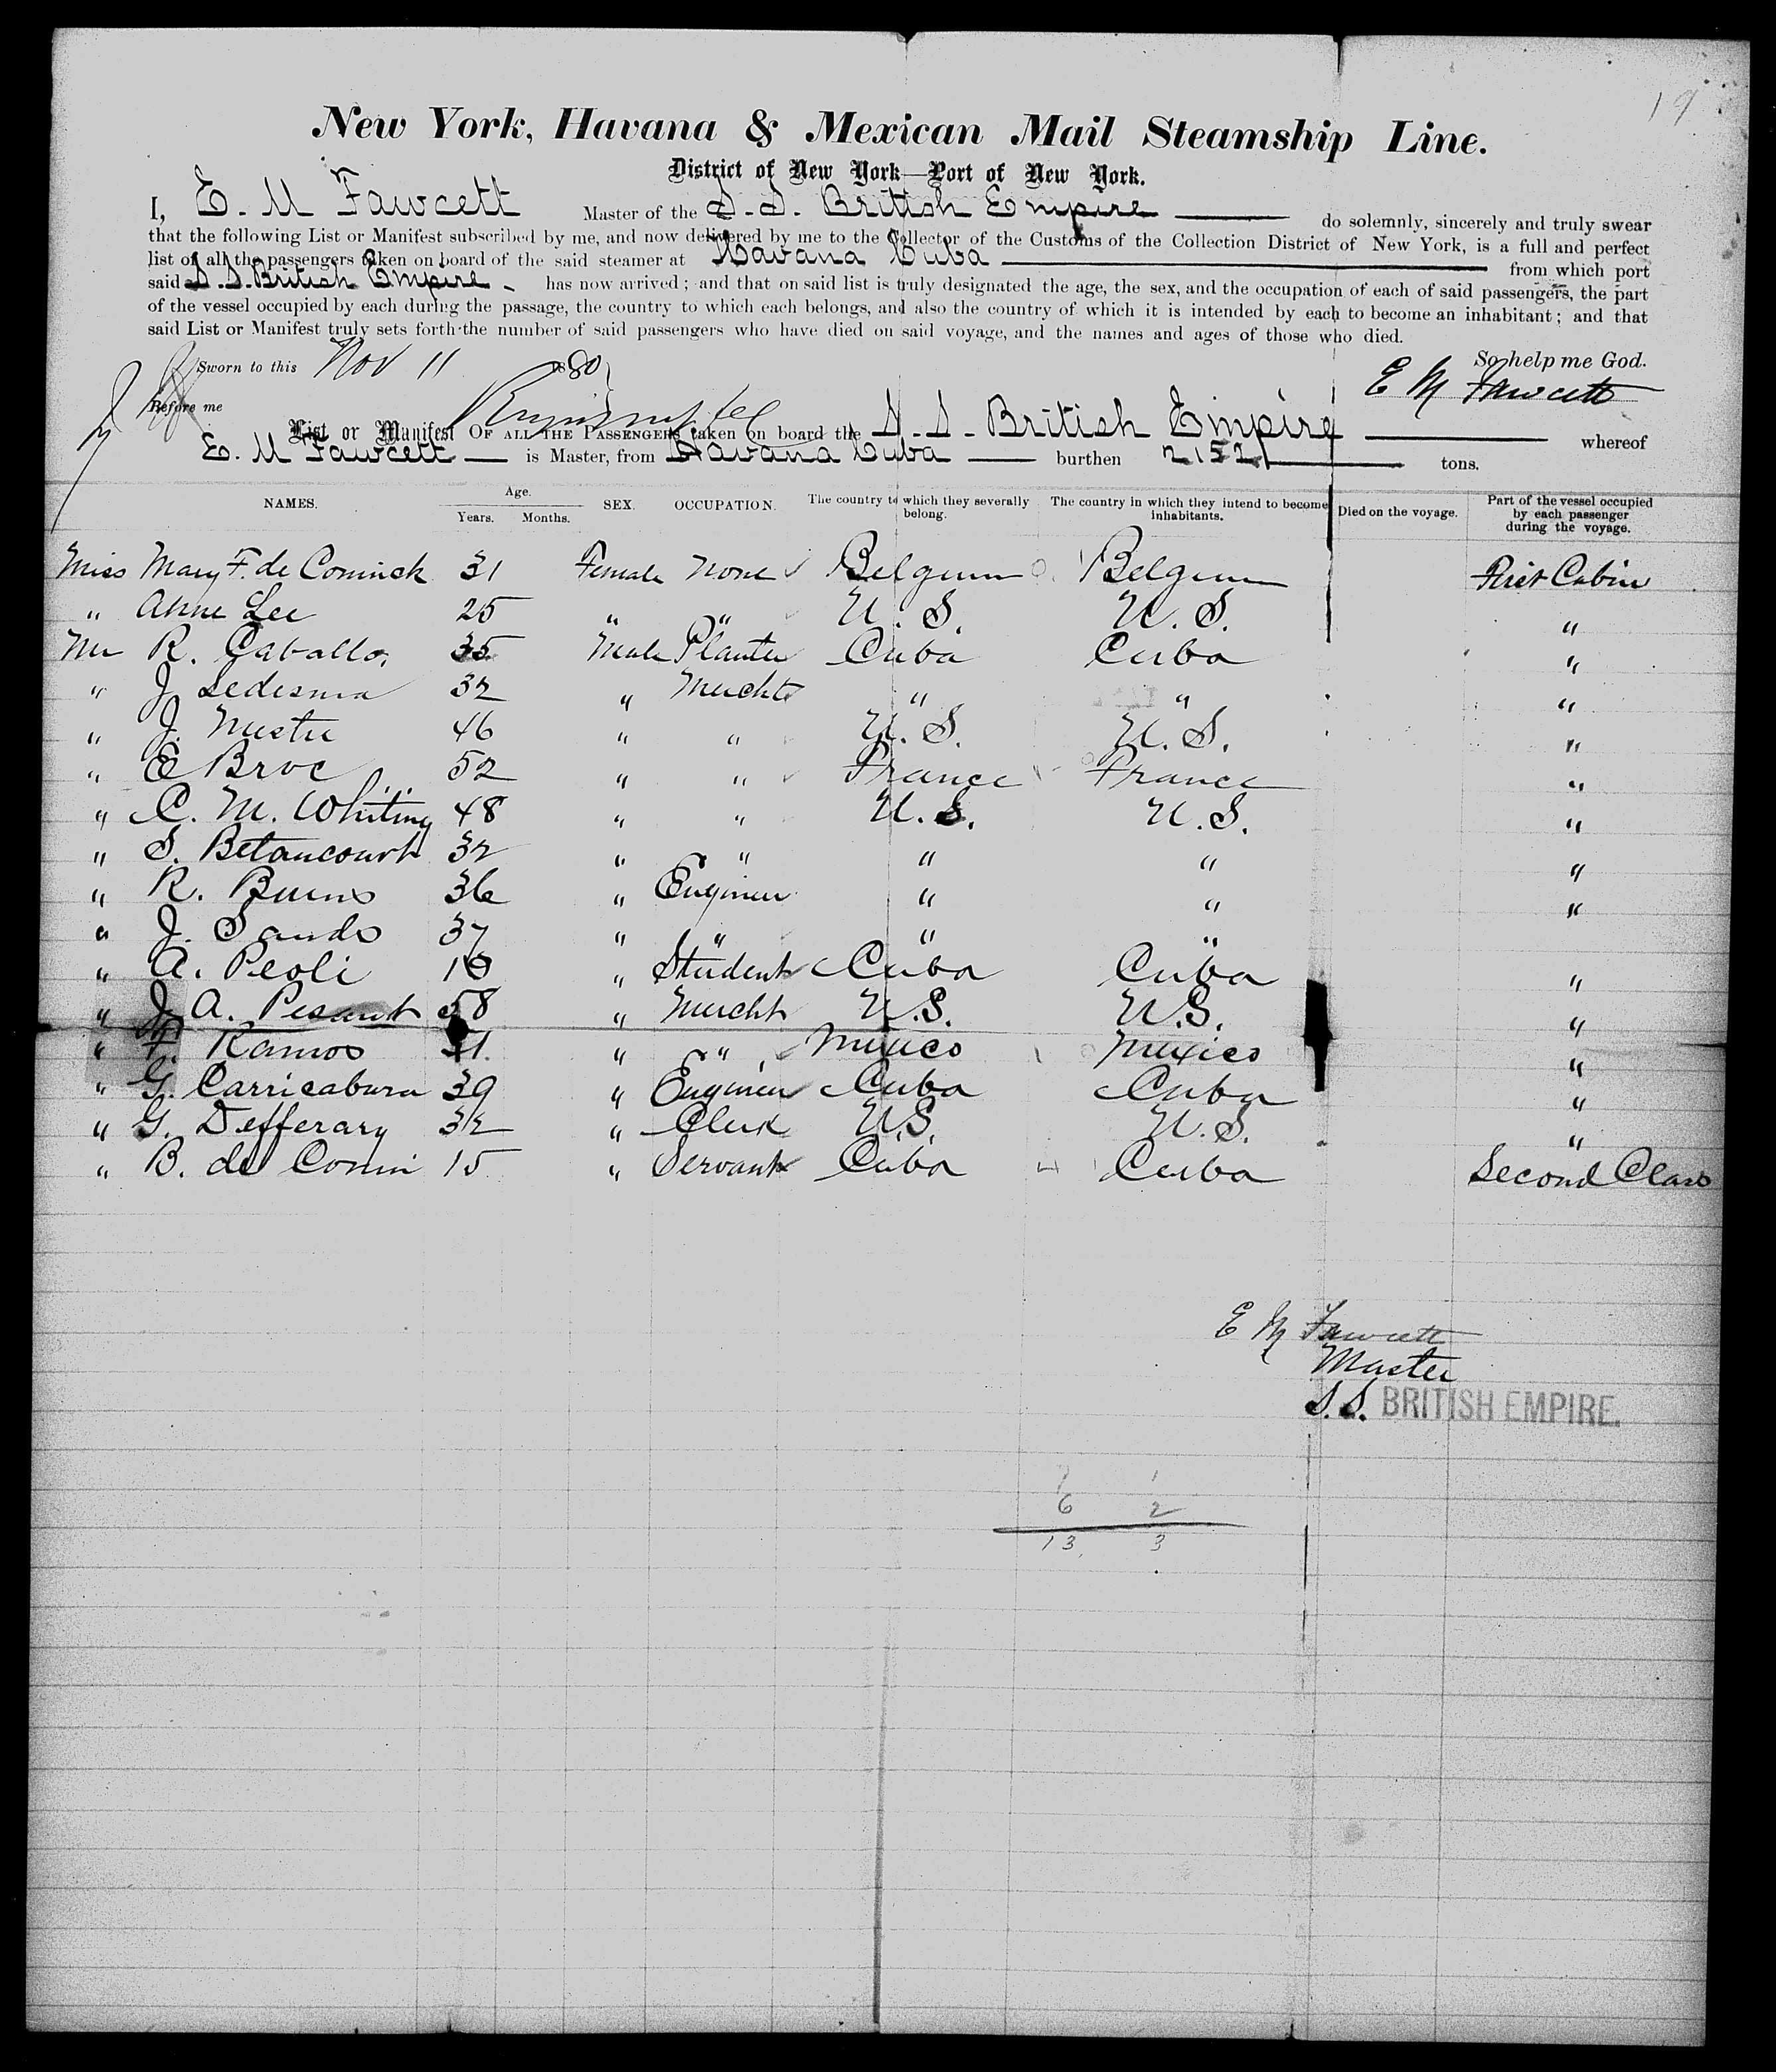 19
New York, Havana & Mexican Mail Steamship Line.
District of New York—Port of New York.
I, E. M Fawcett Master of the S.S. British Empire do solemnly, sincerely and truly swear
that the following List or Manifest subscribed by me, and now delivered by me to the Collector of the Customs of the Collection District of New York, is a full and perfect
list of all the passengers taken on board of the said steamer at Havana Cuba from which port
said S.S. British Empire - has now arrived; and that on said list is truly designated the age, the sex, and the occupation of each of said passengers, the part
of the vessel occupied by each during the passage, the country to which each belongs, and also the country of which it is intended by each to become an inhabitant; and that
said List or Manifest truly sets forth the number of said passengers who have died on said voyage, and the names and ages of those who died.
Sworn to this Nov 11 1880 So help me God.
Before me E M Fawcett
List or Manifest OF ALL THE PASSENGERS taken on board the S.S. British Empire whereof
E. M Fawcett is Master, from Havana Cuba burthen 2152 tons.
NAMES. Age. Years. Months. SEX. OCCUPATION. The country to which they severally belong. The country in which they intend to become inhabitants. Died on the voyage. Part of the vessel occupied by each passenger during the voyage.
Miss Mary F. de Coninck 31 Female None Belgium Belgium First Cabin
" Anne Lee 25 " " U.S. U.S. "
Mr R. Caballo, 35 Male Planter Cuba Cuba "
" J Ledesma 32 " Mercht " " "
" J. Mestre 46 " " U.S. U.S. "
" E Broc 52 " " France France "
" C. M. Whiting 48 " " U.S. U.S. "
" S. Betancourt 32 " " " " "
" R. Burns 36 " Engineer " " "
" J. Sands 37 " " " "
" A. Peoli 16 " Student Cuba Cuba "
" J A. Pesant 58 " Mercht U.S. U.S. "
" Ramos 41 " " Mexico Mexico "
" G. Carricaburu 39 " Engineer Cuba Cuba "
" G. Defferary 32 " Clerk U.S. U.S. "
" B. de Conin 15 " Servant Cuba Cuba Second Class
E M Fawcett
Master
S.S. BRITISH EMPIRE.
1
6 2
13 3